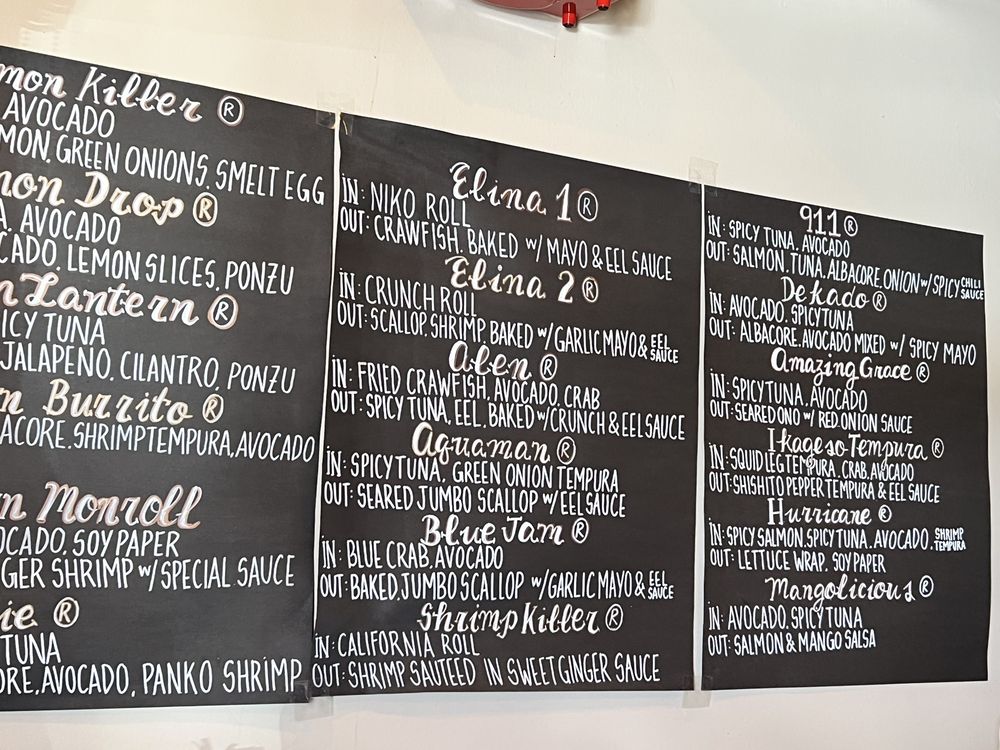 mon Killer ®
AVOCADO
MON, GREEN ONIONS, SMELT EGG
mon Drop ®
A, AVOCADO
CADO, LEMON SLICES, PONZU
n Lantern ®
ICY TUNA
JALAPENO, CILANTRO, PONZU
n Burrito ®
ACORE, SHRIMP TEMPURA, AVOCADO
n Monroll
OCADO, SOY PAPER
GER SHRIMP w/ SPECIAL SAUCE
ie ®
TUNA
ORE, AVOCADO, PANKO SHRIMP
Elina 1 ®
IN: NIKO ROLL
OUT: CRAWFISH, BAKED w/ MAYO & EEL SAUCE
Elina 2 ®
IN: CRUNCH ROLL
OUT: SCALLOP, SHRIMP, BAKED w/ GARLIC MAYO & EEL SAUCE
Alen ®
IN: FRIED CRAWFISH, AVOCADO, CRAB
OUT: SPICY TUNA, EEL, BAKED w/ CRUNCH & EEL SAUCE
Aquaman ®
IN: SPICY TUNA, GREEN ONION TEMPURA
OUT: SEARED JUMBO SCALLOP w/ EEL SAUCE
Blue Jam ®
IN: BLUE CRAB, AVOCADO
OUT: BAKED JUMBO SCALLOP w/ GARLIC MAYO & EEL SAUCE
Shrimp Killer ®
IN: CALIFORNIA ROLL
OUT: SHRIMP SAUTEED IN SWEET GINGER SAUCE
911 ®
IN: SPICY TUNA, AVOCADO
OUT: SALMON, TUNA, ALBACORE, ONION w/ SPICY CHILI SAUCE
Dekado ®
IN: AVOCADO, SPICY TUNA
OUT: ALBACORE, AVOCADO MIXED w/ SPICY MAYO
Amazing Grace ®
IN: SPICY TUNA, AVOCADO
OUT: SEARED ONO w/ RED ONION SAUCE
Ikageso Tempura ®
IN: SQUID LEG TEMPURA, CRAB, AVOCADO
OUT: SHISHITO PEPPER TEMPURA & EEL SAUCE
Hurricane ®
IN: SPICY SALMON, SPICY TUNA, AVOCADO, SHRIMP TEMPURA
OUT: LETTUCE WRAP, SOY PAPER
Mangolicious ®
IN: AVOCADO, SPICY TUNA
OUT: SALMON & MANGO SALSA